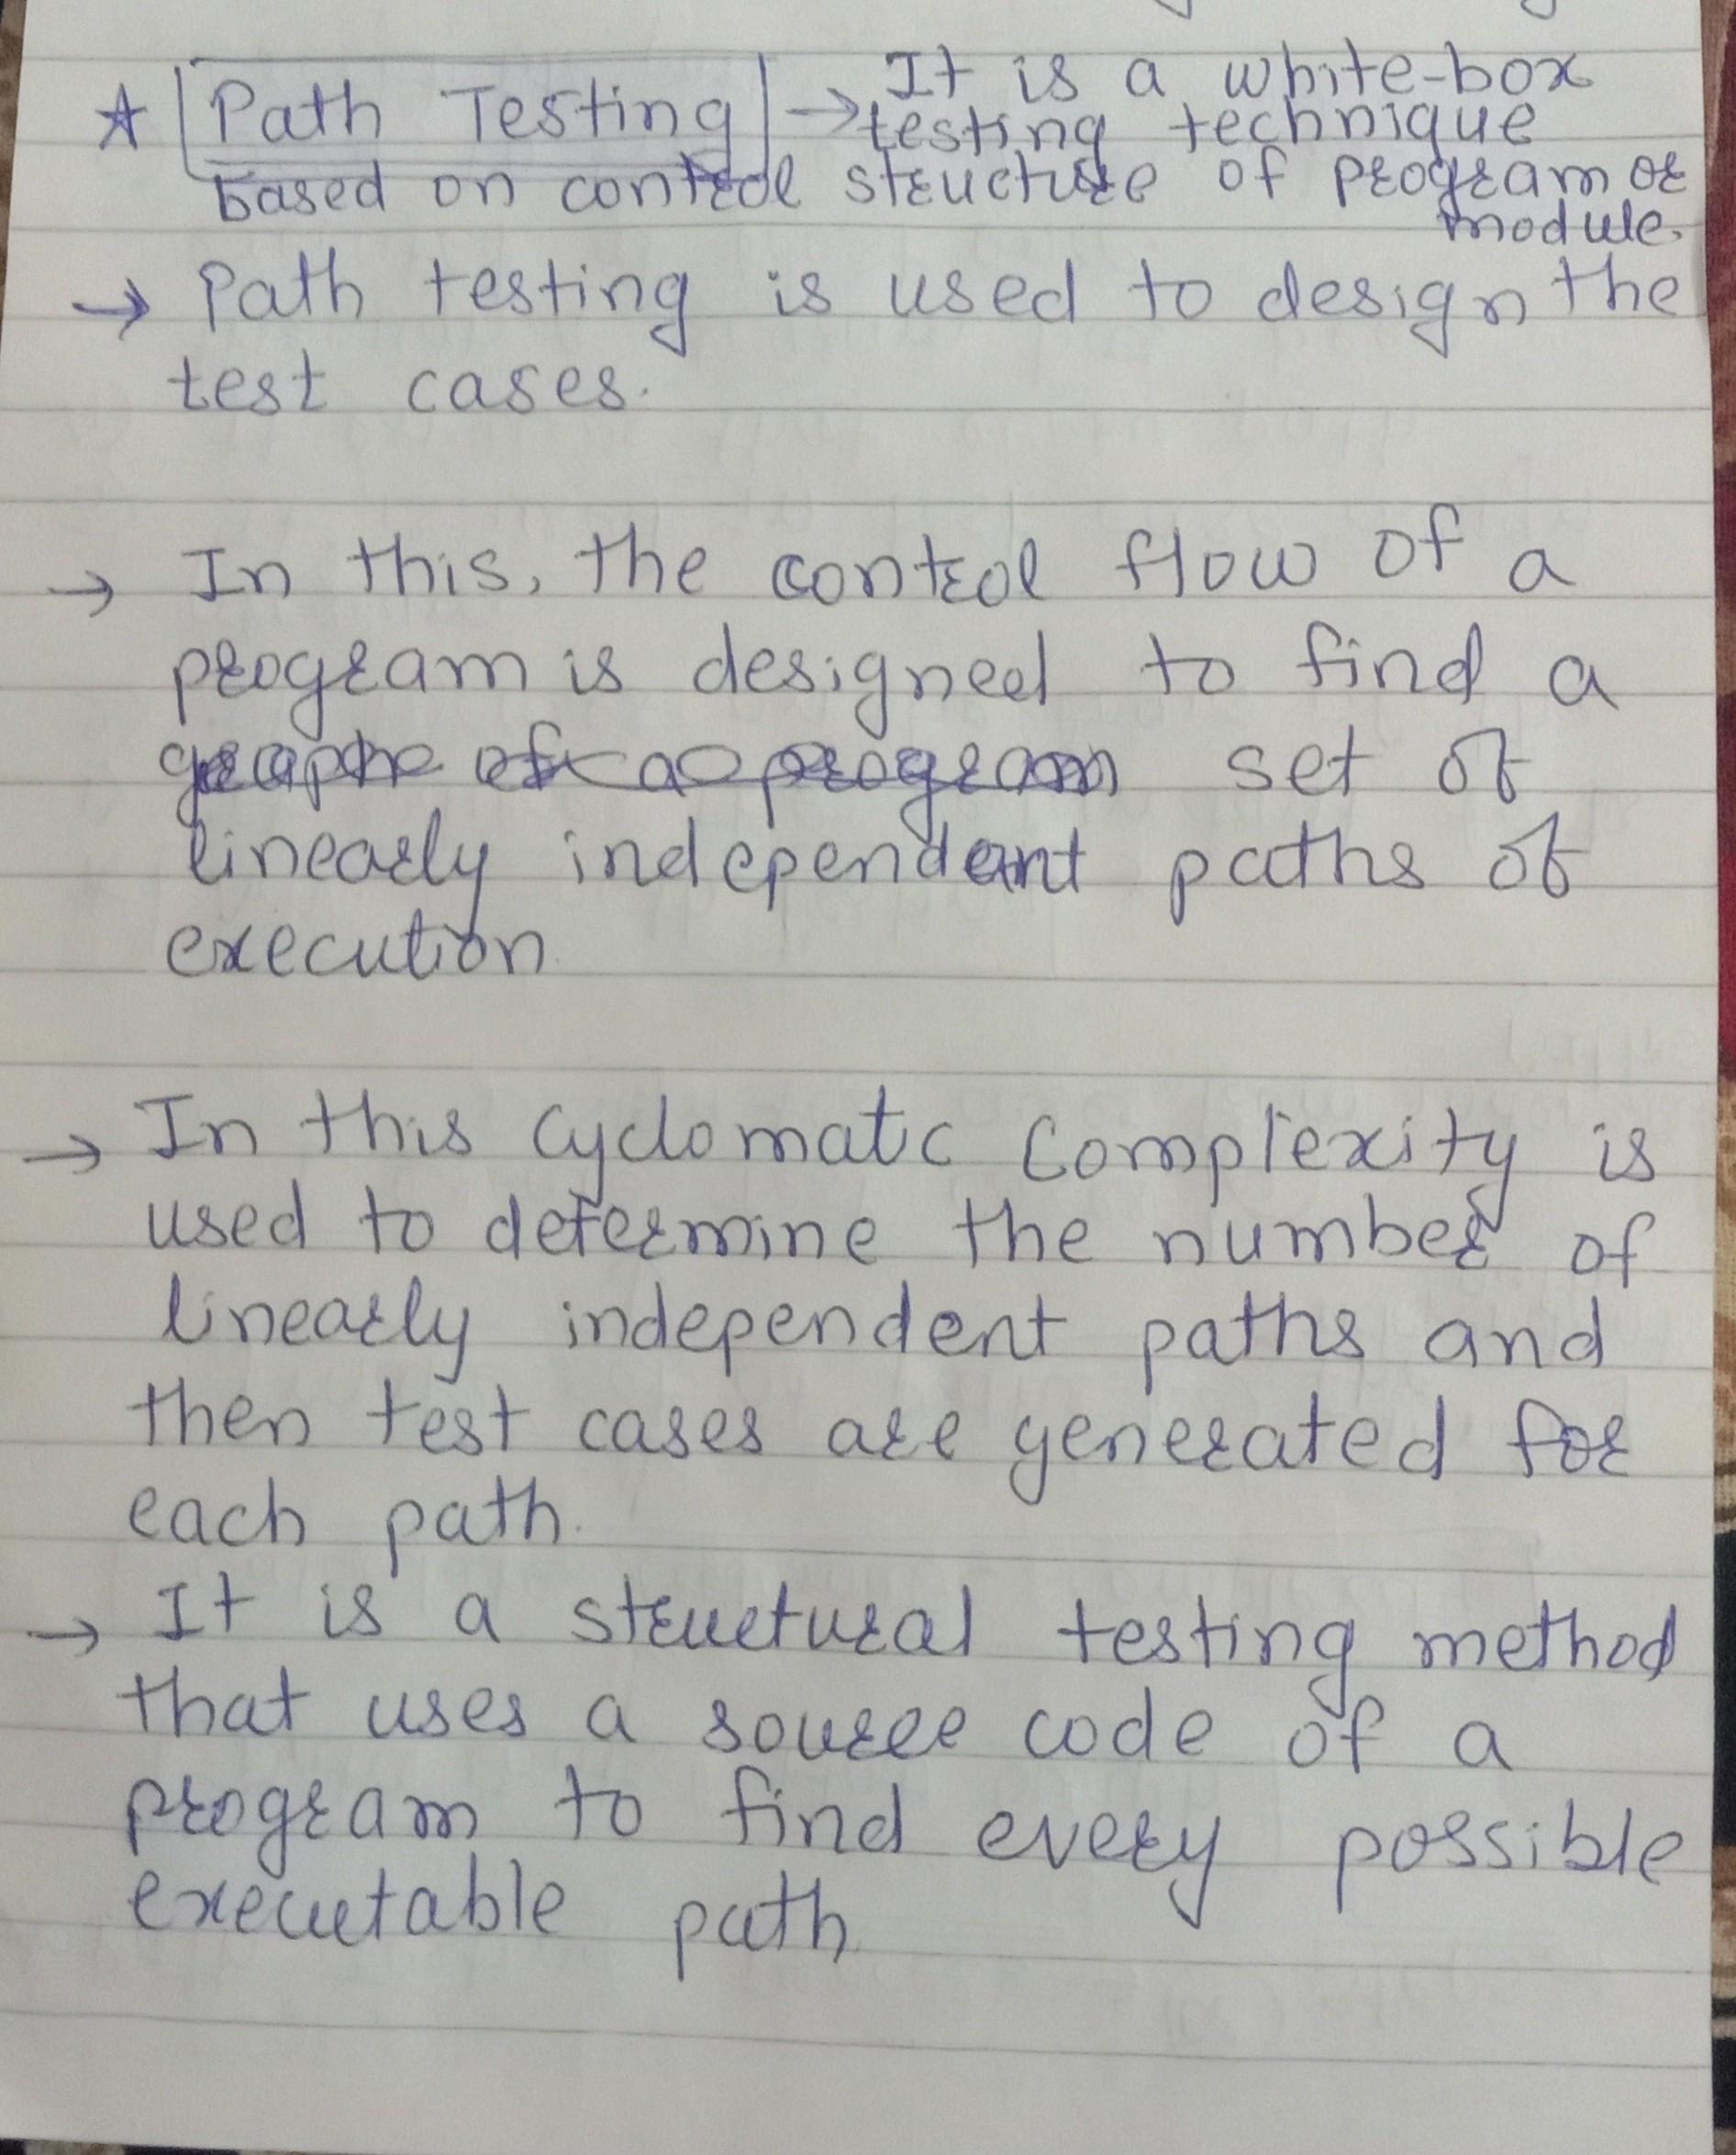 ★ Path Testing → It is a white-box
testing technique
based on control structure of program or
module.
→ Path testing is used to design the
test cases.
→ In this, the control flow of a
program is designed to find a
graph of a program set of
linearly independent paths of
execution
→ In this Cyclomatic Complexity is
used to determine the number of
linearly independent paths and
then test cases are generated for
each path.
→ It is a structural testing method
that uses a source code of a
program to find every possible
executable path